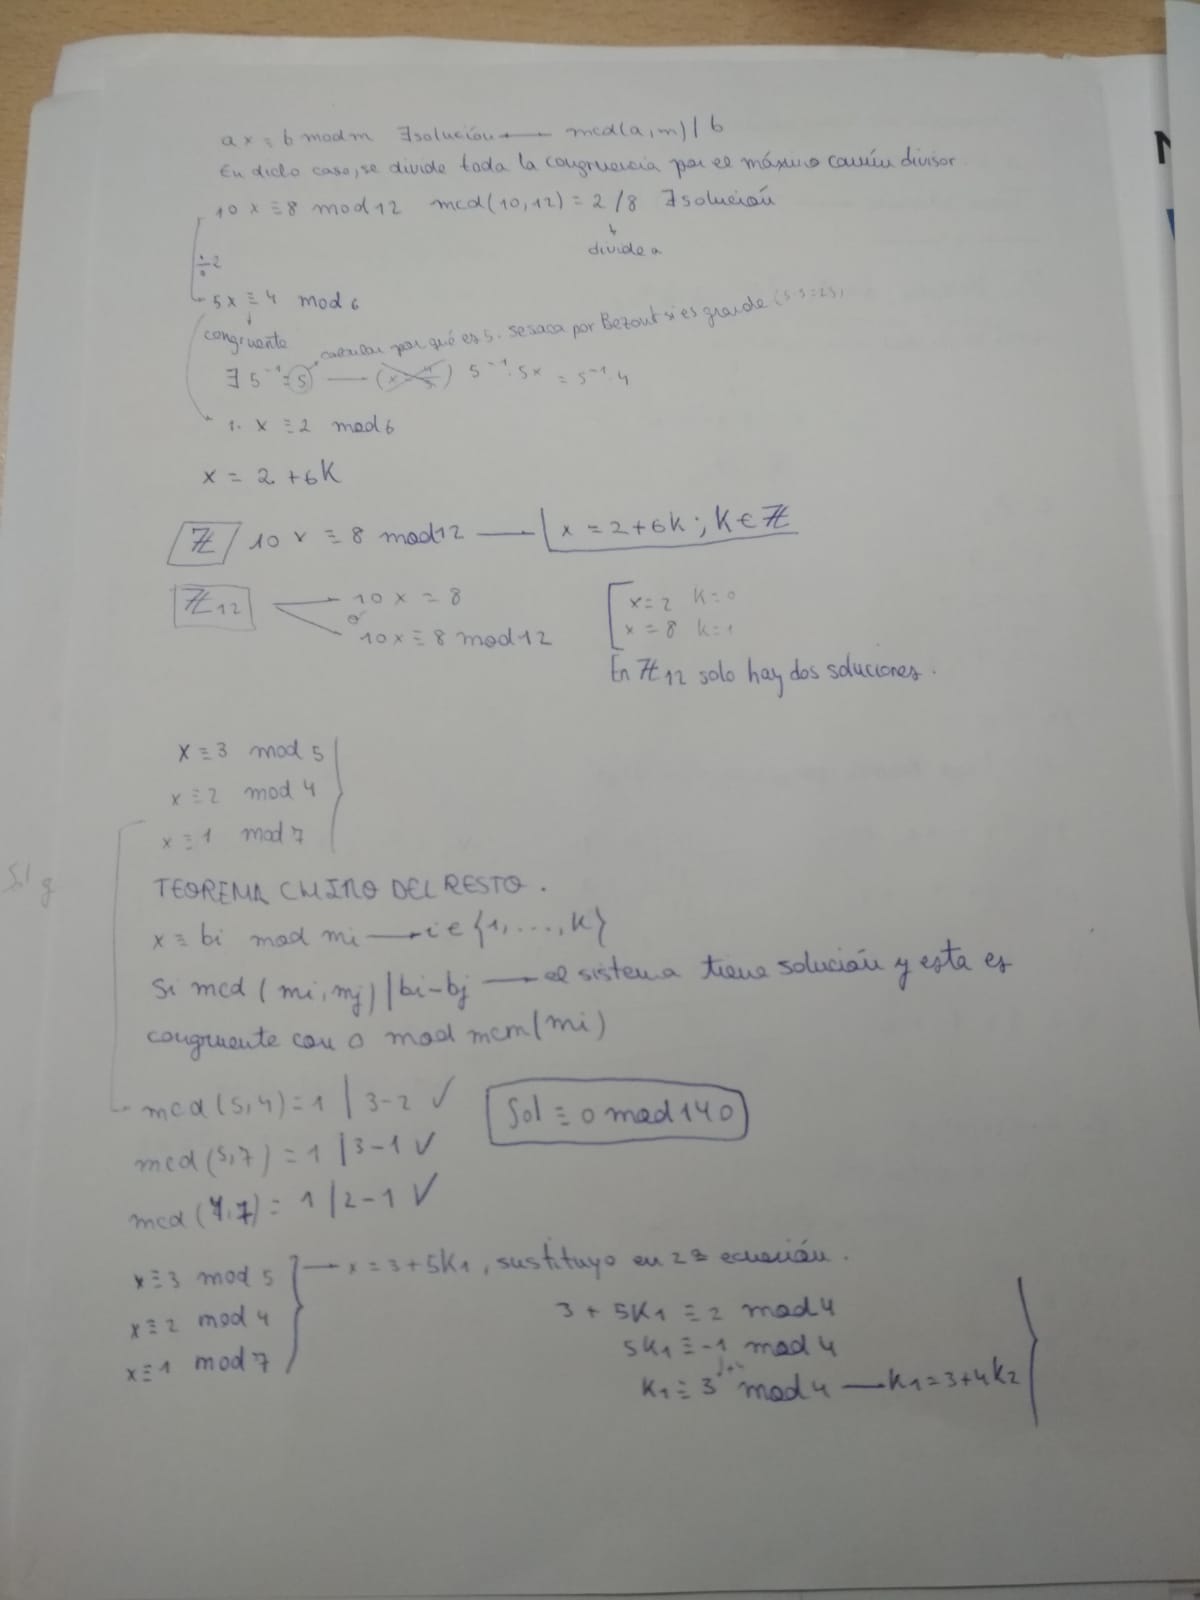 ax ≡ b mod m ∃ solución — mcd(a,m) | b
En dicho caso, se divide toda la congruencia por el máximo común divisor.
10x ≡ 8 mod 12 mcd(10,12) = 2/8 ∃ solución
divide a
÷2
5x ≡ 4 mod 6
congruente
calcular por qué es 5. se saca por Bezout si es grande (5·5=25)
∃ 5⁻¹ = 5 — 5⁻¹·5x = 5⁻¹·4
1·x ≡ 2 mod 6
x = 2 + 6K
ℤ 10x ≡ 8 mod 12 — x = 2+6K; K ∈ ℤ
ℤ12 10x = 8
o
10x ≡ 8 mod 12
x=2 K=0
x=8 K=1
En ℤ12 solo hay dos soluciones.
x ≡ 3 mod 5
x ≡ 2 mod 4
x ≡ 1 mod 7
TEOREMA CHINO DEL RESTO.
x ≡ bi mod mi → i ∈ {1,...,K}
Si mcd(mi, mj) | bi-bj → el sistema tiene solución y esta es
congruente con 0 mod mcm(mi)
mcd(5,4)=1 | 3-2 ✓
Sol ≡ 0 mod 140
mcd(5,7) = 1 | 3-1 ✓
mcd(4,7) = 1 | 2-1 ✓
x ≡ 3 mod 5 → x = 3+5K1, sustituyo en 2ª ecuación.
x ≡ 2 mod 4
x ≡ 1 mod 7
3 + 5K1 ≡ 2 mod 4
5K1 ≡ -1 mod 4
↓+4
K1 ≡ 3 mod 4 — K1=3+4K2